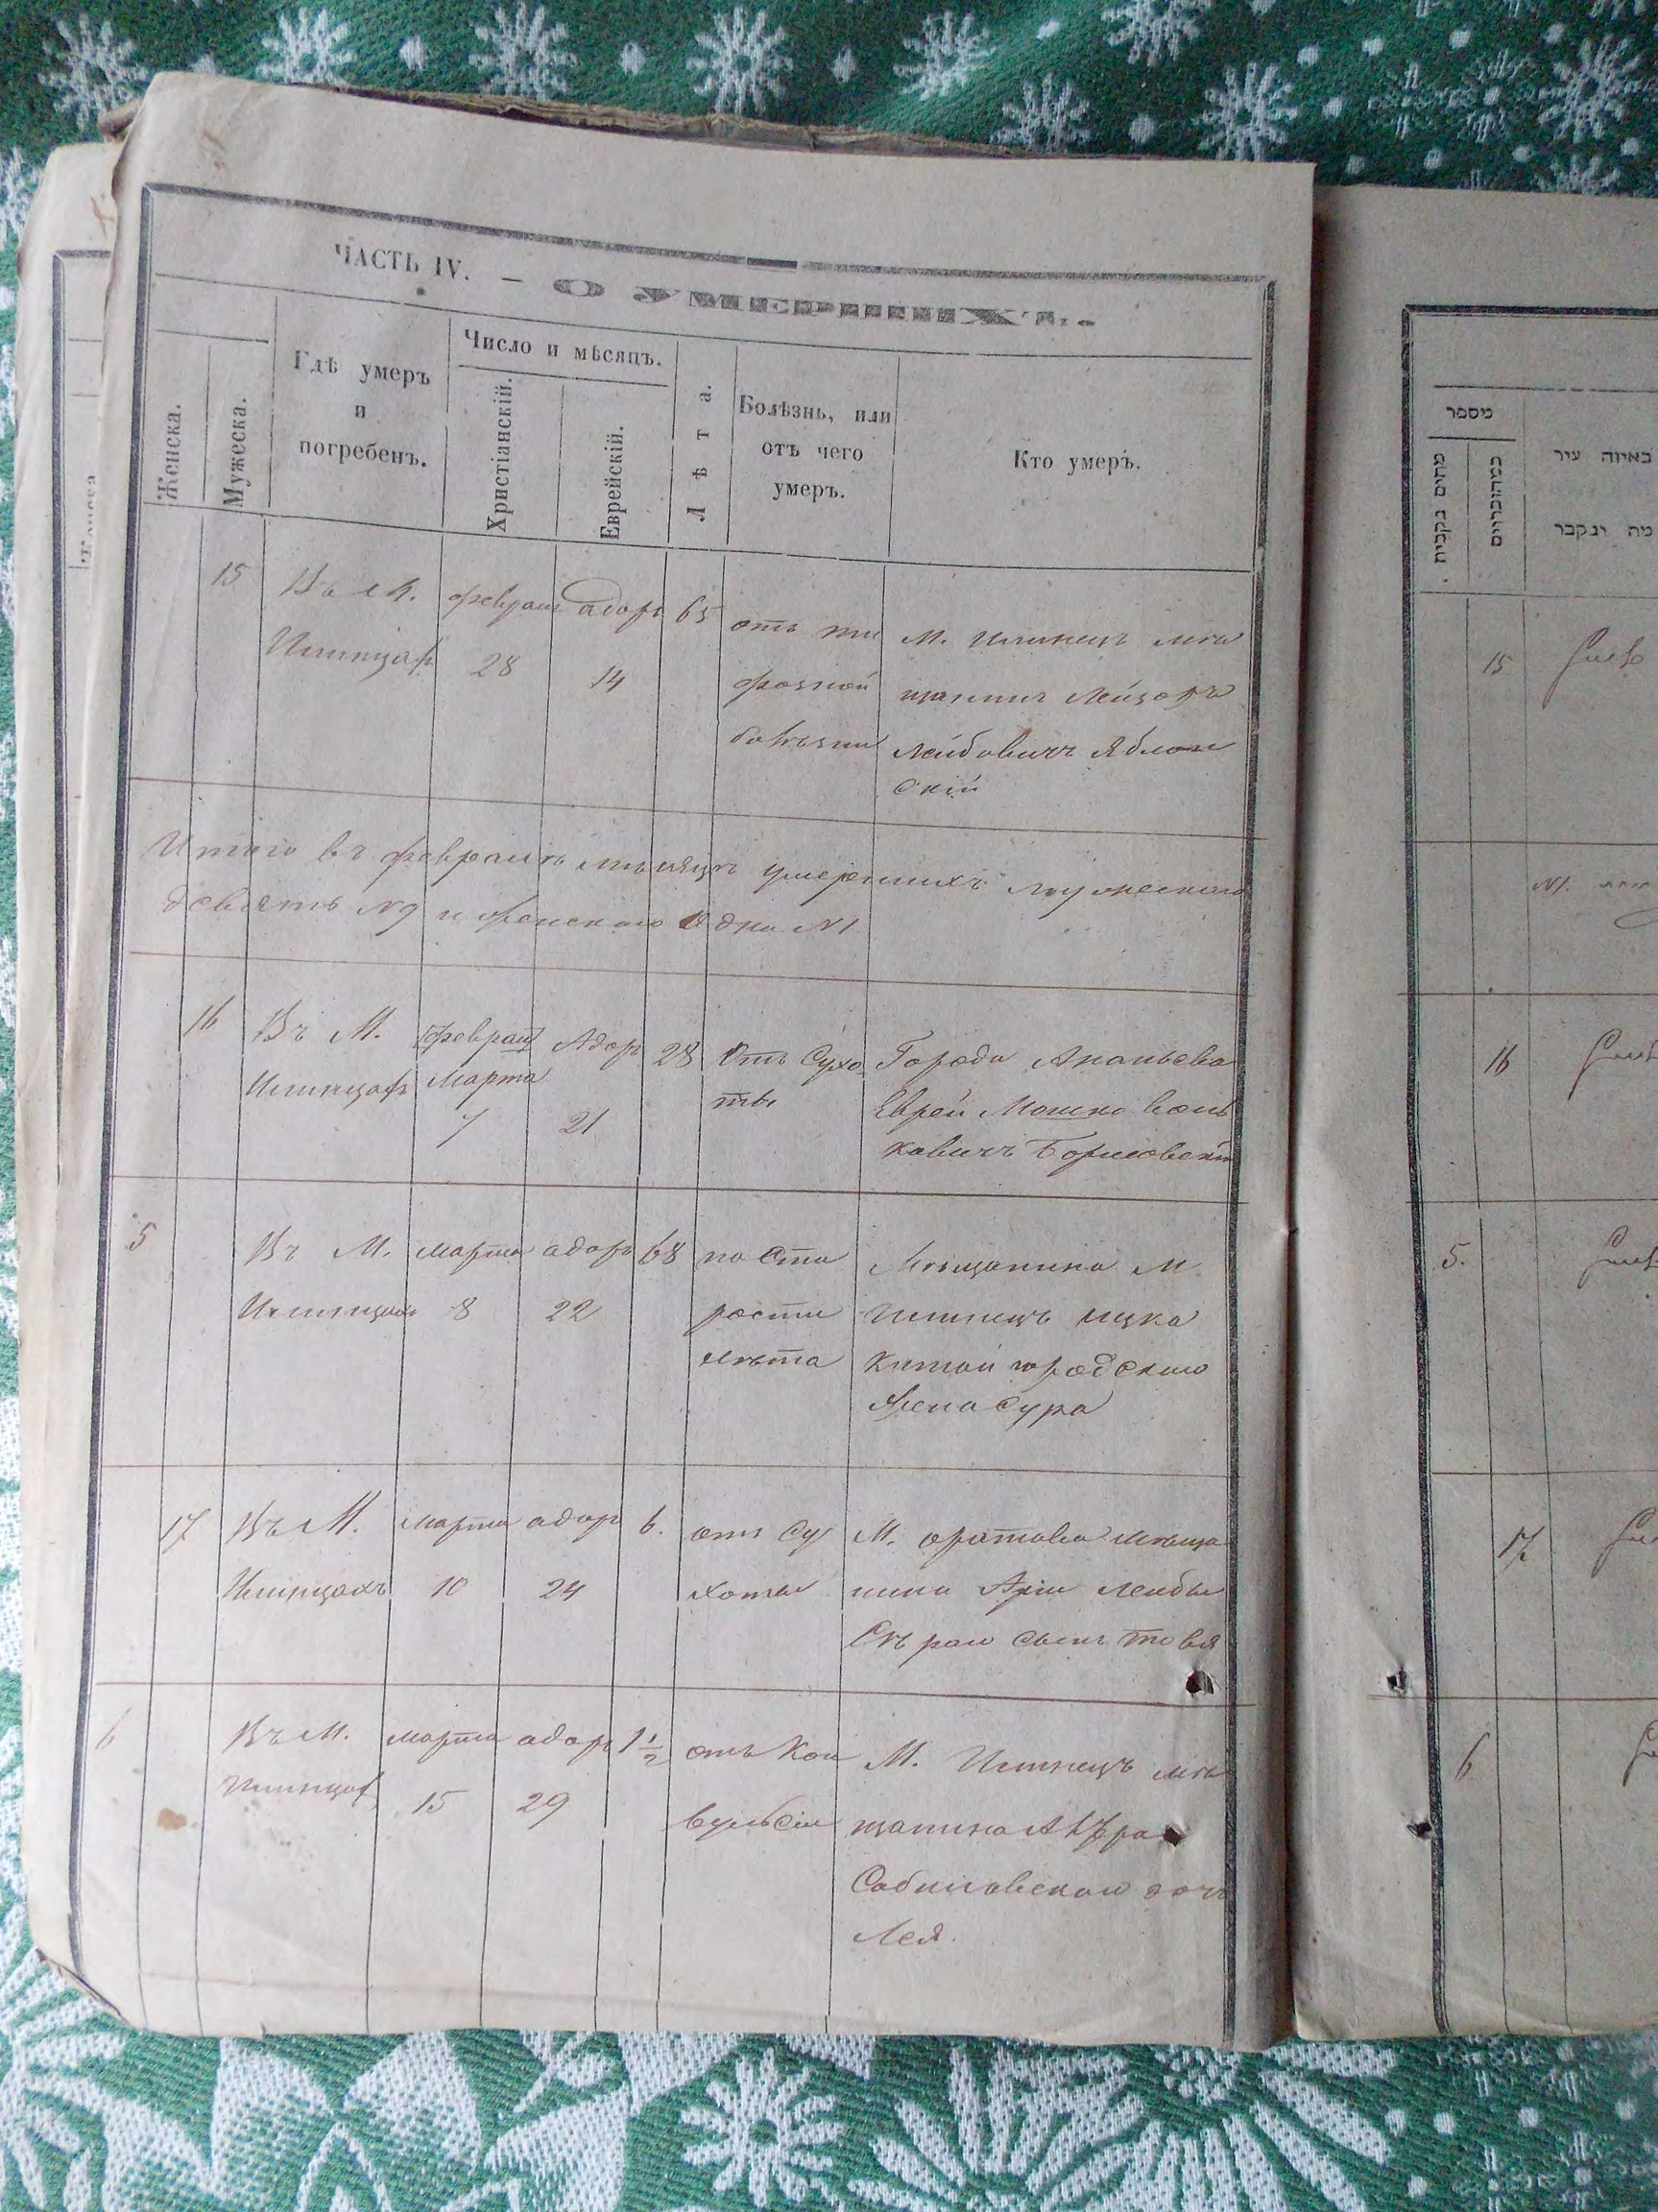 ЧАСТЬ IV. — О УМЕРШИХЪ.
Женска.
Мужеска.
Гдѣ умеръ
и
погребенъ.
Число и мѣсяцъ.
Христіанскій.
Еврейскій.
Лѣта.
Болѣзнь, или
отъ чего
умеръ.
Кто умеръ.
15
28
адоръ
14
65
отъ ти
фозной
болѣзни
М. Илинецъ мѣ
щанинъ Лейзоръ
Лейбовичъ Яблон
скій
Итого въ февралѣ мѣсяцѣ умершихъ мужескаго
девять №9 и женскаго одна №1
16
Въ М.
Илинцахъ
феврал
Марта
7
Адоръ
21
28
Отъ Сухо
ты
Города Ананьева
Еврей Мошко
5
Въ М.
Илинцахъ
марта
8
адоръ
22
68
по Ста
рости
лѣта
Мѣщанина М.
Илинецъ Ицка
Китай городскаго
жена Сура
17
Въ М.
Илинцахъ
марта
10
адоръ
24
6.
отъ Су
хоты
М. Оратова мѣща
нина Арія Лейбы
сынъ
6
Въ М.
Илинцах
марта
15
адоръ
29
1 1/2
отъ Кон
вульсіи
М. Илинецъ мѣ
щанина
дочь
Лея.
מספר
באיזה עיר
מת ונקבר
15
16
5.
17
6